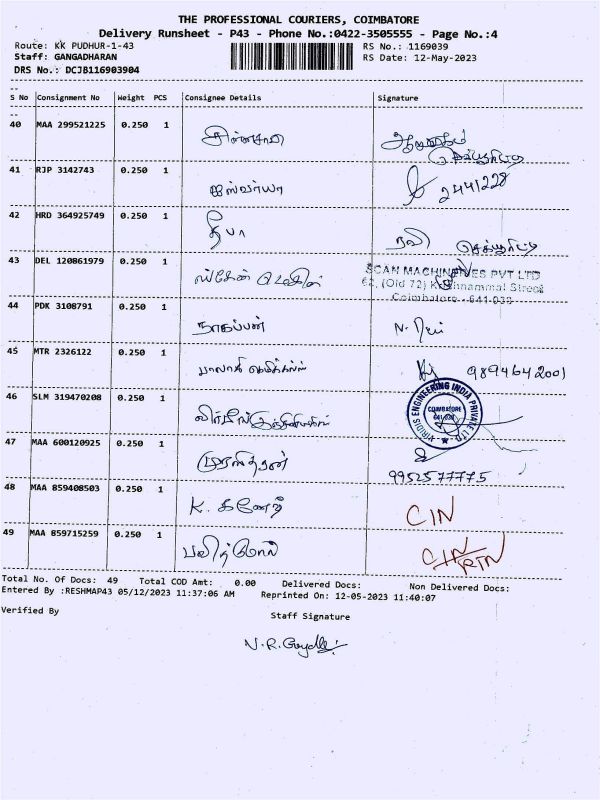 THE PROFESSIONAL COURIERS, COIMBATORE
Delivery Runsheet - P43 - Phone No.:0422-3505555 - Page No.:4
Route: KK PUDHUR-1-43
RS No.: 1169039
Staff: GANGADHARAN
RS Date: 12-May-2023
DRS No.: DCJB116903904
S No Consignment No Weight PCS Consignee Details Signature
40 MAA 299521225 0.250 1
41 RJP 3142743 0.250 1 ஐஸ்வர்யா 2441228
42 HRD 364925749 0.250 1 தீபா ரவி செக்யூரிட்டி
43 DEL 120861979 0.250 1
SCAN MACHINES PVT LTD
62, (Old 72) Krishnammal Street
Coimbatore - 641-038
44 PDK 3108791 0.250 1 நாகப்பன்
45 MTR 2326122 0.250 1 பாலாஜி கெமிக்கல்ஸ் 9894642001
46 SLM 319470208 0.250 1
VIRIDIS ENGINEERING INDIA PRIVATE LTD.
COIMBATORE
641 038
47 MAA 600120925 0.250 1 முரளிதரன்
9952577775
48 MAA 859408503 0.250 1 K. கணேஷ் CIN
49 MAA 859715259 0.250 1 CIN
RTN
Total No. Of Docs: 49 Total COD Amt: 0.00 Delivered Docs: Non Delivered Docs:
Entered By :RESHMAP43 05/12/2023 11:37:06 AM Reprinted On: 12-05-2023 11:40:07
Verified By Staff Signature